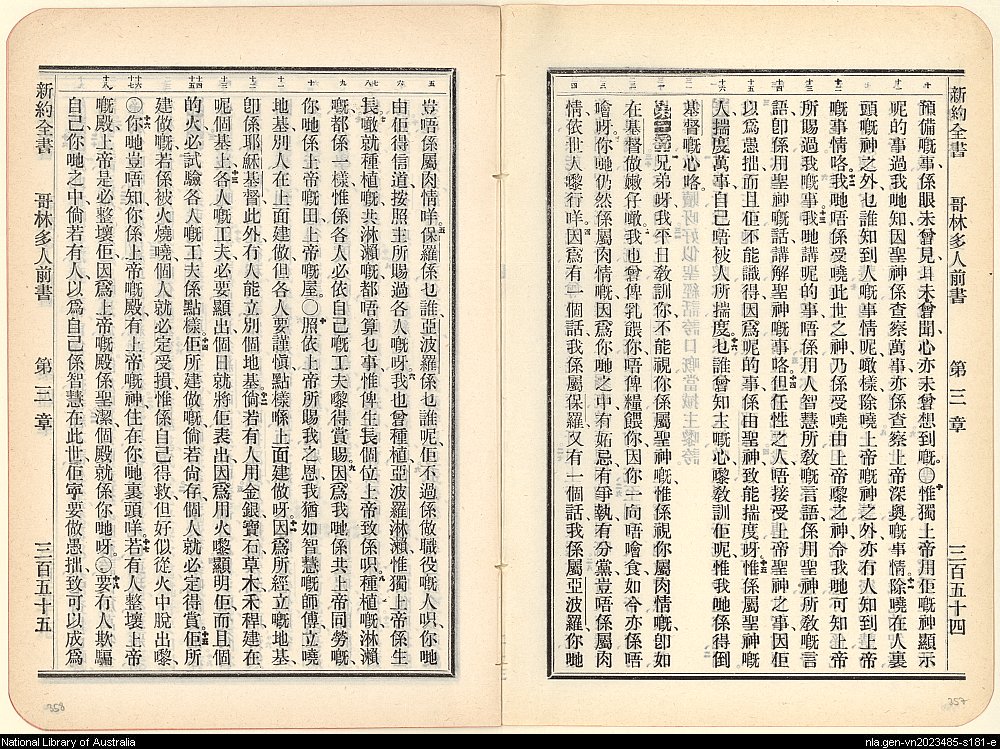 新約全書 哥林多人前書 第三章 三百五十四
預備嘅事係眼未曾見耳未曾聞心亦未曾想到嘅〇惟獨上帝用佢嘅神顯示
呢的事過我哋知因聖神係查察萬事亦係查察上帝深奧嘅事情除曉在人裏
頭嘅神之外乜誰知到人嘅事情呢噉樣除曉上帝嘅神之外亦冇人知到上帝
嘅事情咯我哋唔係受曉此世之神乃係受曉由上帝嚟之神令我哋可知上帝
所賜過我哋嘅事我哋講呢的事唔係用人智慧所敎嘅言語係用聖神所敎嘅言
語卽係用聖神嘅話講解聖神嘅事咯但任性之人唔接受上帝聖神之事因佢
以爲愚拙而且佢不能識得因爲呢的事係由聖神致能揣度呀惟係屬聖神嘅
人揣度萬事自己唔被人所揣度乜誰曾知主嘅心嚟敎訓佢呢惟我哋係得倒
基督嘅心咯
兄弟呀我平日敎訓你不能視你係屬聖神嘅惟係視你屬肉情嘅卽如
在基督做嫩仔噉我也曾俾乳餵你唔俾糧餵你因你一向唔噲食如今亦係唔
噲呀你哋仍然係屬肉情嘅因爲你哋之中有妬忌有爭執有分黨豈唔係屬肉
情依世人嚟行咩因爲有個話我係屬保羅又有一個話我係屬亞波羅你哋
新約全書 哥林多人前書 第三章 三百五十五
豈唔係屬肉情咩保羅係乜誰亞波羅係乜誰呢佢不過係做職役嘅人唄你哋
由佢得信道按照主所賜過各人嘅呀我也曾種植亞波羅淋瀨惟獨上帝係生
長噉就種植嘅共淋瀨嘅都唔算乜事惟俾生長個位上帝致係唄種植嘅淋瀨
嘅都係一樣惟係各人必依自己嘅工夫嚟得賞賜因爲我哋係共上帝同勞嘅
你哋係上帝嘅田上帝嘅屋〇照依上帝所賜我之恩我猶如智慧嘅師傅立曉
地基別人在上面建做但各人要謹愼點樣喺上面建做呀因爲所經立嘅地基
卽係耶穌基督此外冇人能立別個地基倘若有人用金銀寶石草木禾稈建在
呢個基上各人嘅工夫必要顯出個日就將佢表出因爲用火嚟顯明佢而且個
的火必試驗各人嘅工夫係點樣佢所建做嘅倘若尙存個人就必定得賞佢所
建做嘅若係被火燒曉個人就必定受損惟係自己得救但好似從火中脫出嚟
〇你哋豈唔知你係上帝嘅殿有上帝嘅神住在你哋裏頭咩若有人整壞上帝
嘅殿上帝是必整壞佢因爲上帝嘅殿係聖潔個殿就係你哋呀〇要冇人欺騙
自己你哋之中倘若有人以爲自己係智慧在此世佢寧要做愚拙致可以成爲
358
357
National Library of Australia
nla.gen-vn2023485-s181-e